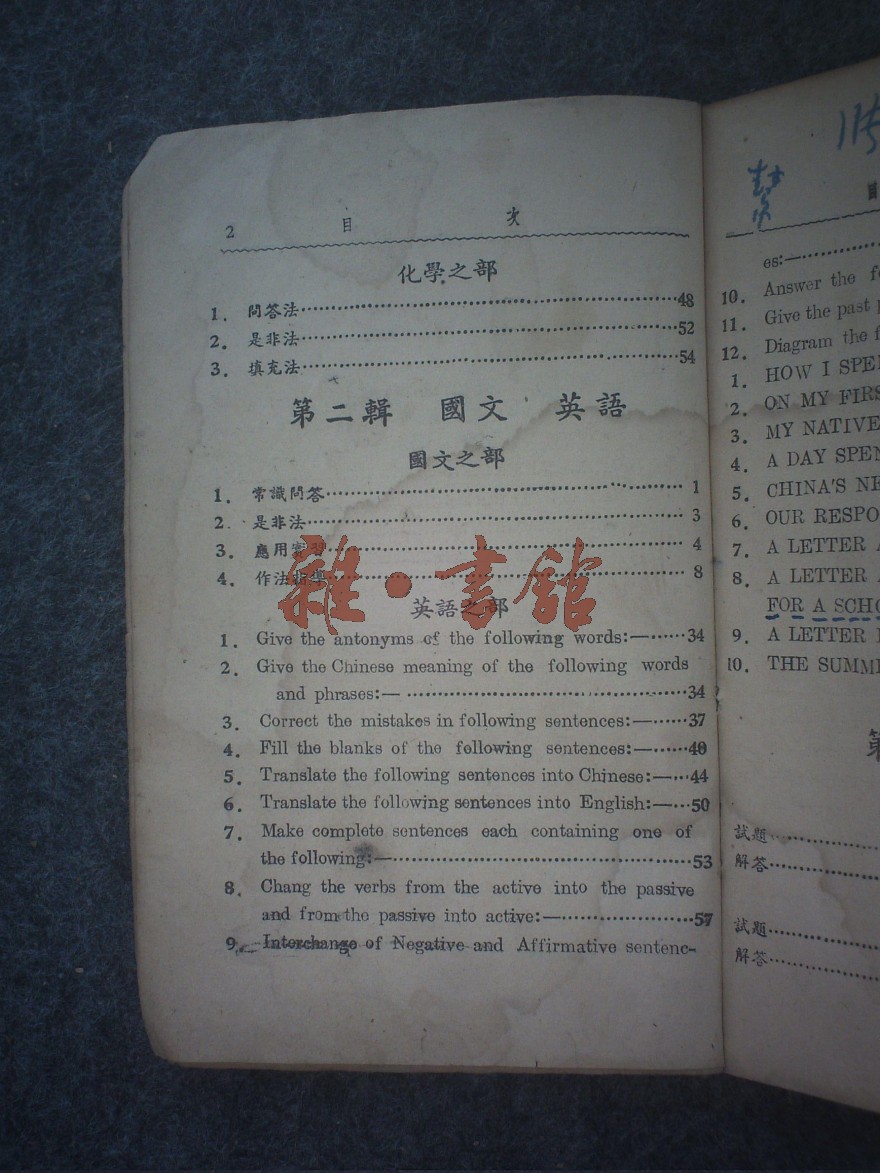 2 目 次
化學之部
1. 問答法 48
2. 是非法 52
3. 填充法 54
第二輯 國文 英語
國文之部
1. 常識問答 1
2. 是非法 3
3. 應用實習 4
4. 作法指導 8
雜·書館
英語之部
1. Give the antonyms of the following words:— 34
2. Give the Chinese meaning of the following words
and phrases:— 34
3. Correct the mistakes in following sentences:— 37
4. Fill the blanks of the following sentences:— 40
5. Translate the following sentences into Chinese:— 44
6. Translate the following sentences into English:— 50
7. Make complete sentences each containing one of
the following:— 53
8. Chang the verbs from the active into the passive
and from the passive into active:— 57
9. Interchange of Negative and Affirmative sentenc-
es:—
10. Answer the
11. Give the past
12. Diagram the
1. HOW I
2. ON MY
3. MY NATIVE
4. A DAY
5. CHINA'S
6. OUR
7. A LETTER
8. A LETTER
FOR A
9. A LETTER
10. THE
試題
解答
試題
解答